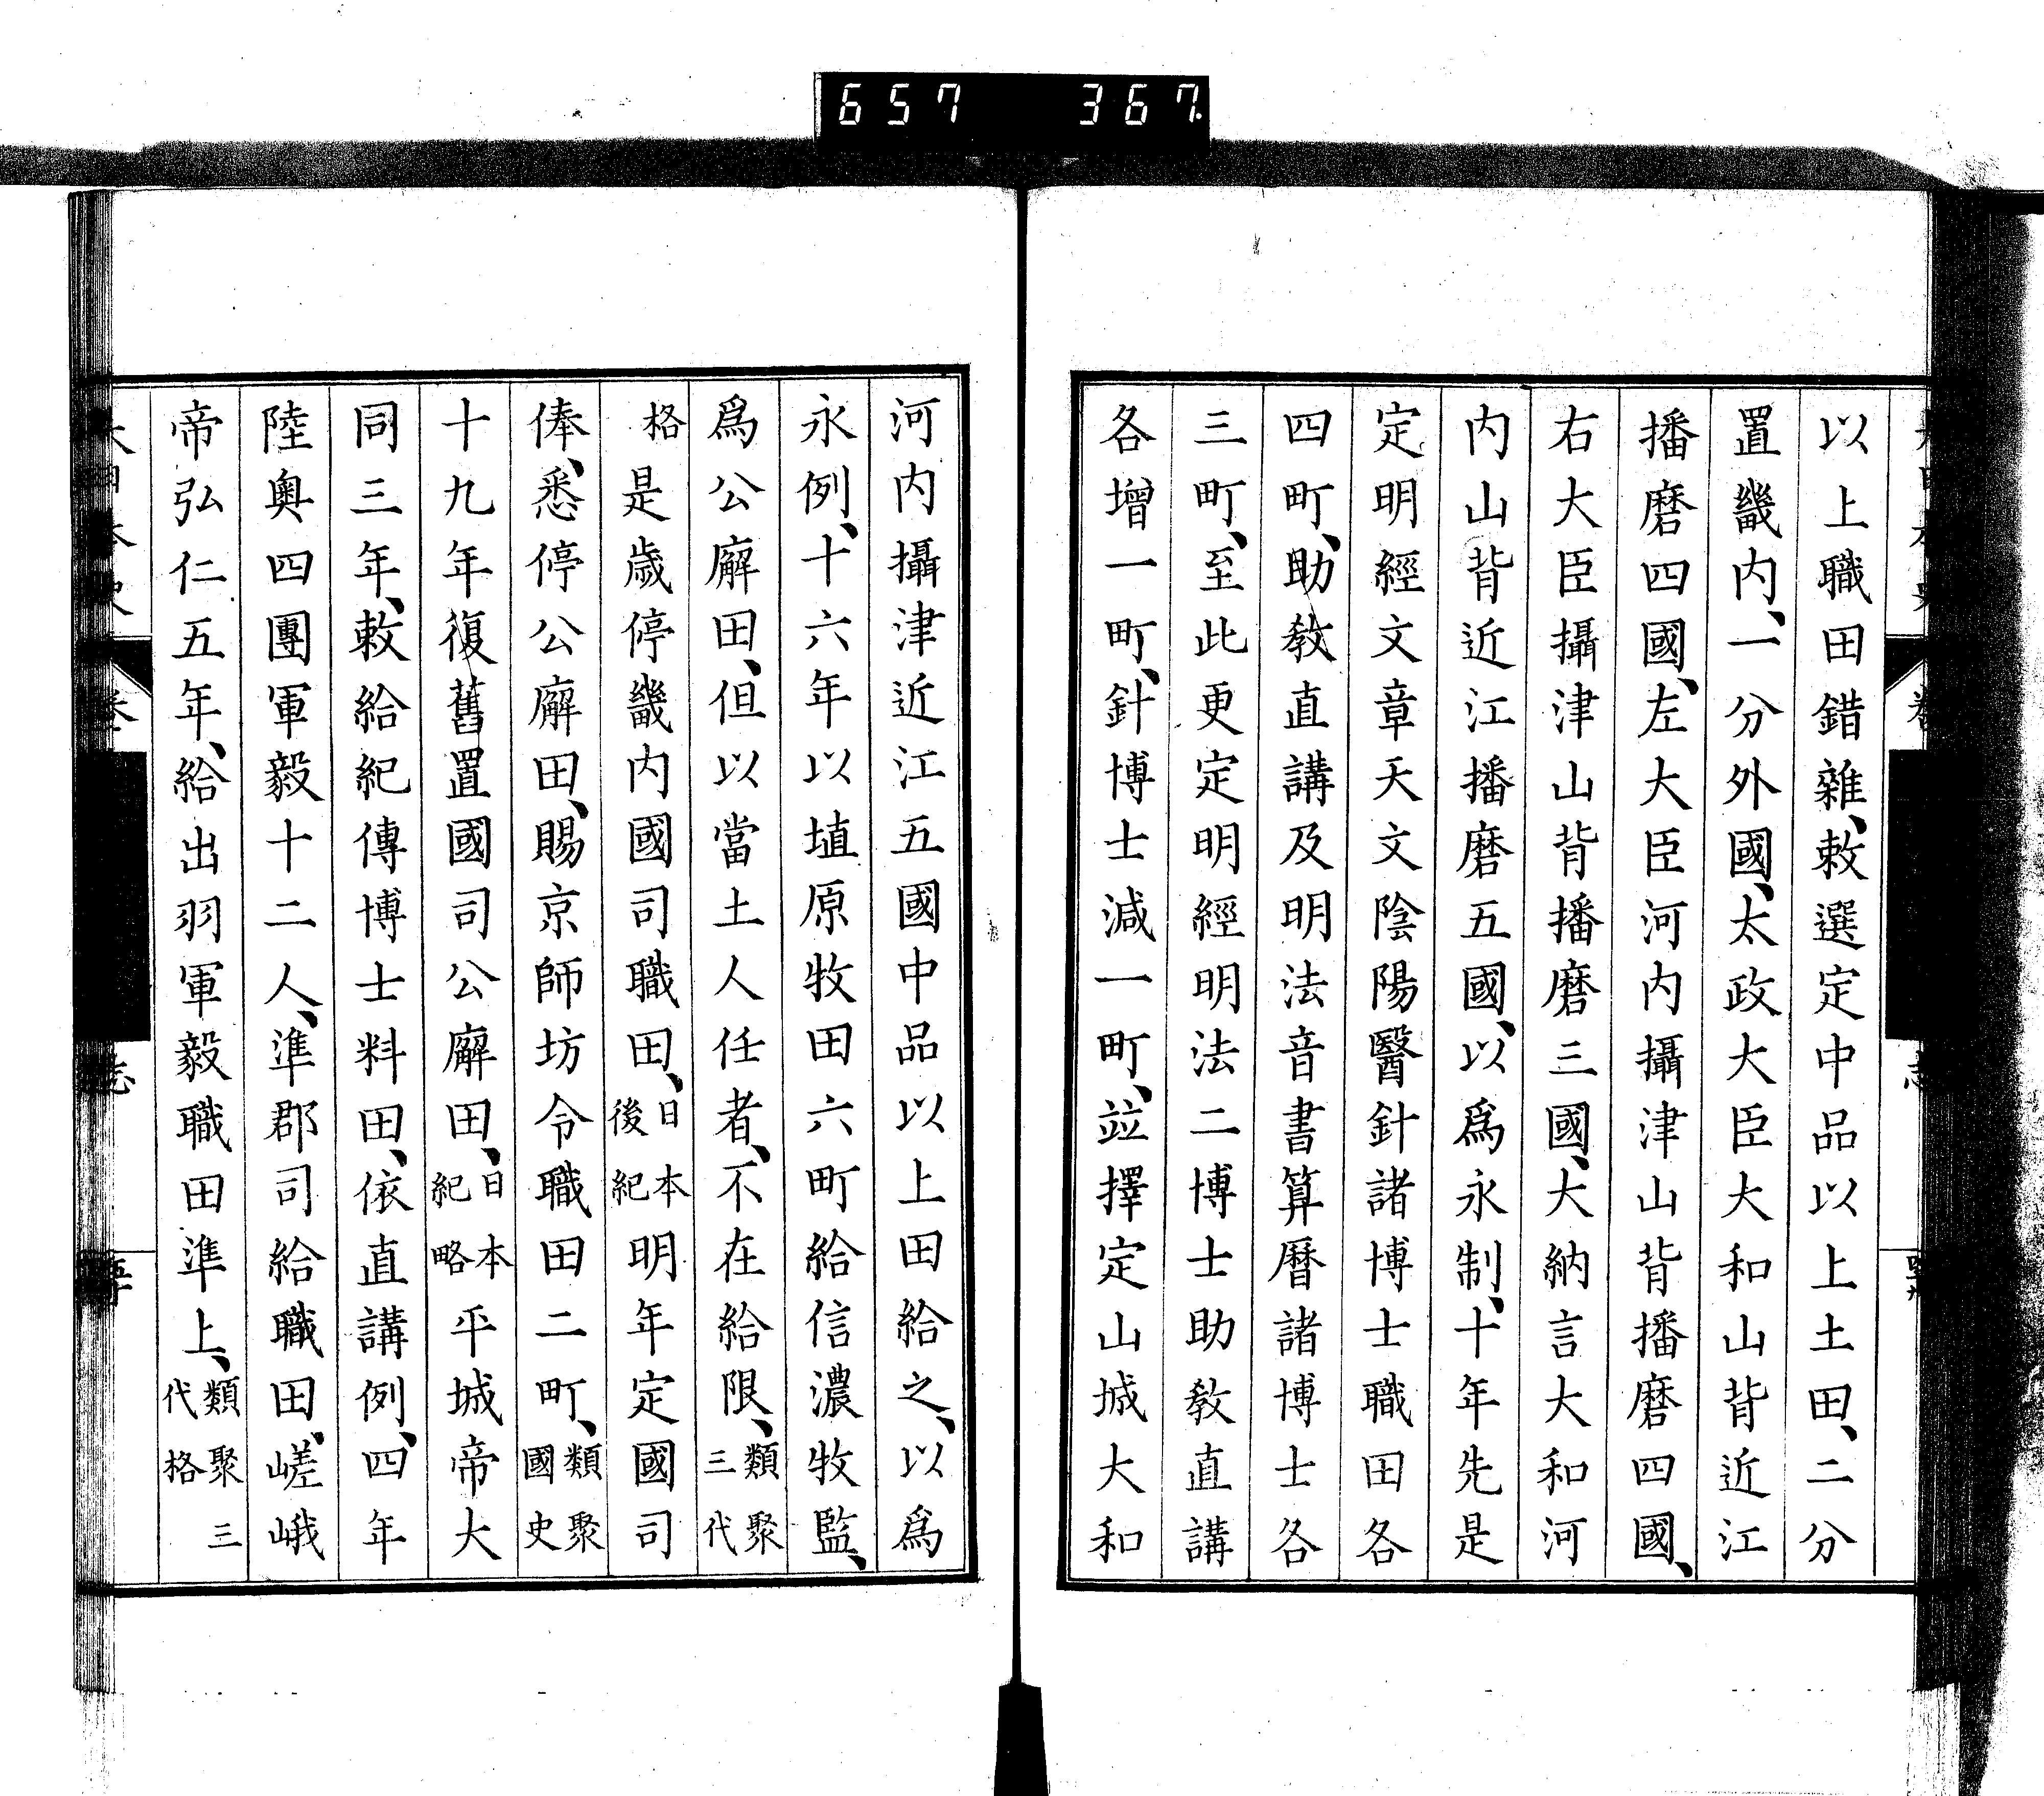 657 367
以上職田錯雜、敕選定中品以上土田、二分
置畿内、一分外國、太政大臣大和山背近江
播磨四國、左大臣河内攝津山背播磨四國、
右大臣攝津山背播磨三國、大納言大和河
内山背近江播磨五國、以爲永制、十年先是
定明經文章天文陰陽醫針諸博士職田各
四町、助敎直講及明法音書算曆諸博士各
三町、至此更定明經明法二博士助敎直講
各增一町、針博士減一町、竝擇定山城大和
河内攝津近江五國中品以上田給之、以爲
永例、十六年以埴原牧田六町給信濃牧監、
爲公廨田、但以當土人任者、不在給限、類聚三代
格是歲停畿内國司職田、日本後紀明年定國司
俸、悉停公廨田、賜京師坊令職田二町、類聚國史
十九年復舊置國司公廨田、日本紀略平城帝大
同三年、敕給紀傳博士料田、依直講例、四年
陸奧四團軍毅十二人、準郡司給職田、嵯峨
帝弘仁五年、給出羽軍毅職田準上、類聚三代格